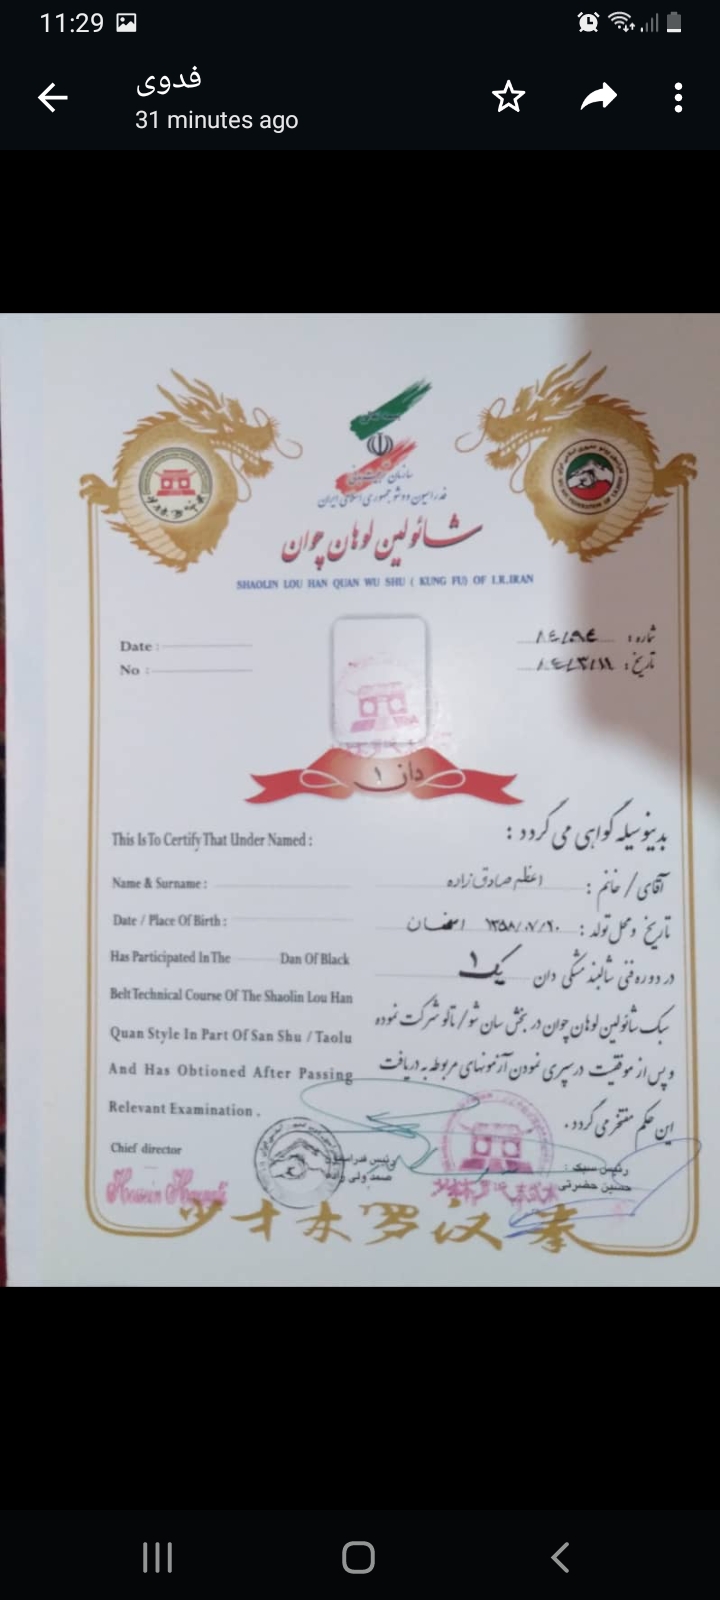 11:29
فدوی
31 minutes ago
سازمان تربیت بدنی
فدراسیون ووشو جمهوری اسلامی ایران
شائولین لوهان چوان
SHAOLIN LOU HAN QUAN WU SHU ( KUNG FU) OF I.R.IRAN
Date :
No :
شماره : ۸٤/۸۹٤
تاریخ :
دان ۱
This Is To Certify That Under Named :
بدینوسیله گواهی می گردد :
Name & Surname :
آقای / خانم : اعظم صادق زاده
Date / Place Of Birth :
تاریخ و محل تولد : ۱۳۵۸/۰۷/۲۰ اصفهان
Has Participated In The Dan Of Black
در دوره فنی شالبند مشکی دان یک ۱
Belt Technical Course Of The Shaolin Lou Han
سبک شائولین لوهان چوان در بخش سان شو / تالو شرکت نموده
Quan Style In Part Of San Shu / Taolu
و پس از موفقیت در سپری نمودن آزمونهای مربوطه به دریافت
And Has Obtioned After Passing
این حکم مفتخر می گردد.
Relevant Examination .
Chief director
رئیس فدراسیون
صمد ولی زاده
رئیس سبک :
حسین حضرتی
Hossein Hazrati
少才木罗汉拳